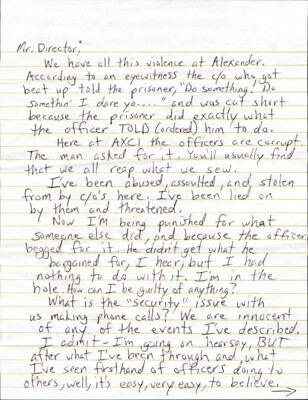 Mr. Director,
We have all this violence at Alexander.
According to an eyewitness the c/o who got
beat up told the prisoner, "Do something! Do
somethin' I dare yo....." and was cut short
because the prisoner did exactly what
the officer TOLD (ordered) him to do.
Here at AXCI the officers are corrupt.
The man asked for it. You'll usually find
that we all reap what we sew.
I've been abused, assaulted, and, stolen
from by c/o's here. I've been lied on
by them and threatened.
Now I'M being punished for what
someone else did, and because the officer
begged for it. He didn't get what he
bargained for, I hear, but I had
nothing to do with it. I'm in the
hole. How can I be guilty of anything?
What is the "security" issue with
us making phone calls? We are innocent
of any of the events I've described.
I admit - I'm going on hearsay, BUT
after what I've been through and, what
I've seen firsthand of officers doing to
others, well, it's easy, very easy, to believe.